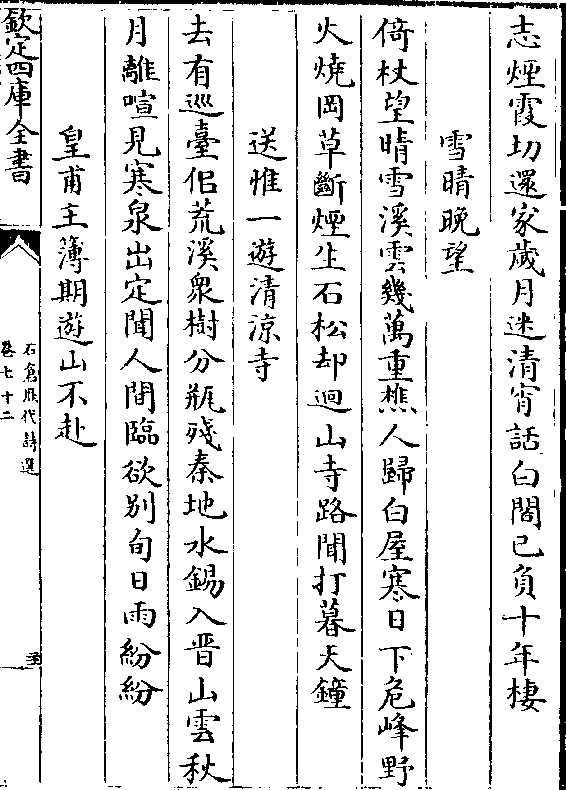 志煙霞切還家歲月迷清宵話白閣已負十年棲
雪晴晚望
倚杖望晴雪溪雲幾萬重樵人歸白屋寒日下危峰野
火燒岡草斷煙生石松却迴山寺路聞打暮天鐘
送惟一遊清涼寺
去有巡臺侶荒溪衆樹分瓶殘秦地水錫入晋山雲秋
月離喧見寒泉出定聞人間臨欲别旬日雨紛紛
皇甫主簿期遊山不赴
欽定四庫全書
石倉歷代詩選
卷七十二